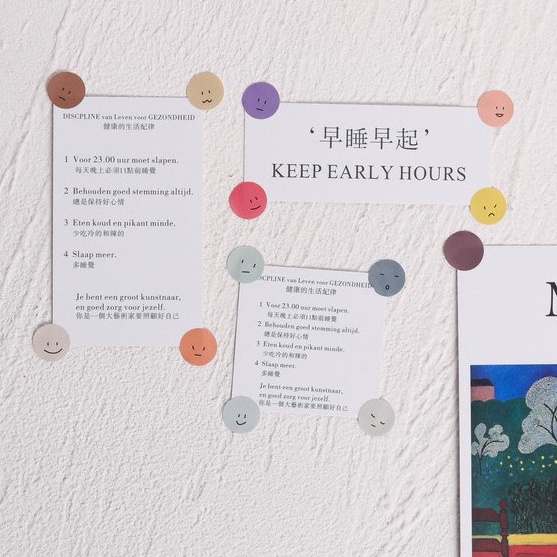 DISCPLINE van Leven voor GEZONDHEID
健康的生活紀律
1 Voor 23.00 uur moet slapen.
每天晚上必須11點前睡覺
2 Behouden goed stemming altijd.
總是保持好心情
3 Eten koud en pikant minde.
少吃冷的和辣的
4 Slaap meer.
多睡覺
Je bent een groot kunstnaar,
en goed zorg voor jezelf.
你是一個大藝術家要照顧好自己
‘早睡早起’
KEEP EARLY HOURS
SCPLINE van Leven voor GEZONDHEID
健康的生活紀律
1 Voor 23.00 uur moet slapen.
每天晚上必須11點前睡覺
2 Behouden goed stemming altijd.
總是保持好心情
3 Eten koud en pikant minde.
少吃冷的和辣的
4 Slaap meer.
多睡覺
Je bent een groot kunstnaar,
en goed zorg voor jezelf.
你是一個大藝術家要照顧好自己
M